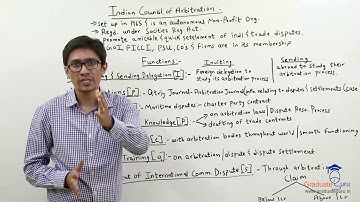 Indian Council of Arbitration.
→ set up in 1965 & is an autonomous Non-Profit Org.
→ Regd. under Socities Reg Act.
Promote amicable & quick settlement of Ind & trade disputes.
GoI, FICCI, PSU, Co's & firms are in its membership
Functions:-
Inviting
Sending
& Sending Delegation [I] :-
Foreign delegation to study its arbitration process
abroad to study their arbitration process.
[P] :- Qtrly Journal-Arbitration Journal (info relating to disputes) settlements (case
:- Maritime disputes - charter Party contract
Knowledge [P]
→ on arbitration laws | Dispute Reso. Process
→ drafting of trade contracts.
[C] :- with arbitration bodies throughout world | smooth functioning
Training [a] :- on arbitration | dispute & dispute settlement.
of International Comm. Dispute [S] :- Through arbitration
Claim
Below 1cr
Above 1cr
Graduate Guru